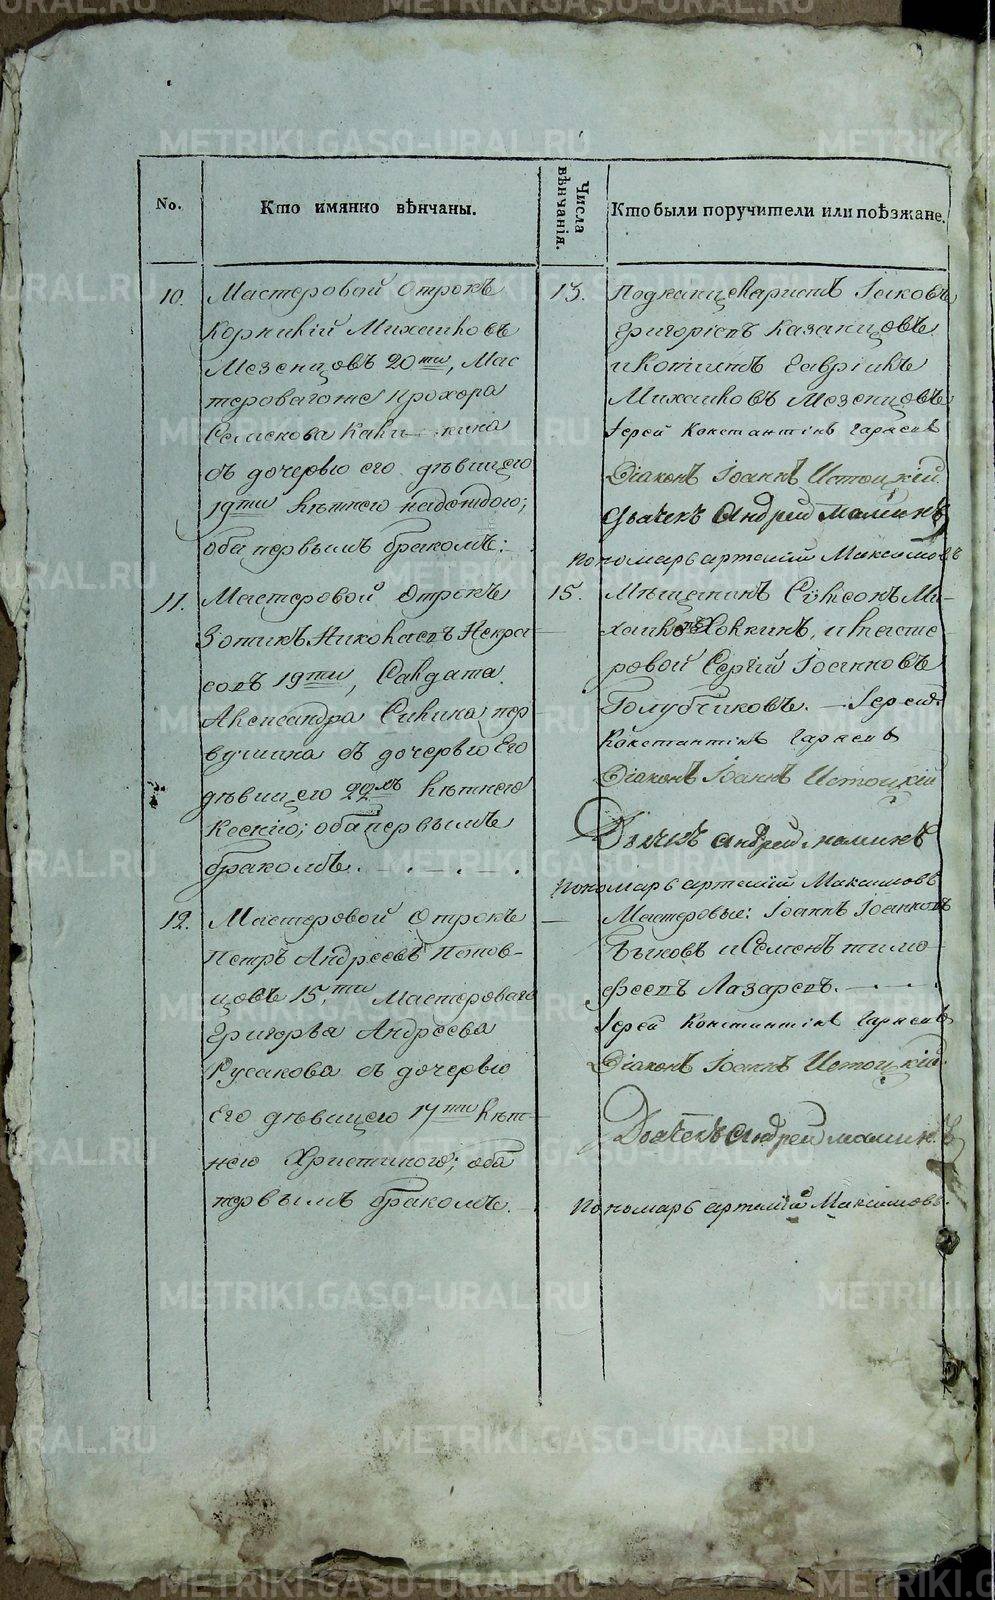 No.
Кто имянно вѣнчаны.
Числа вѣнчанія.
Кто были поручители или поѣзжане.
10.
Мастеровой отрокъ
Корнилій Михаиловъ
Мезенцовъ 20ти, Мас
тероваго Прохора
Семенова
съ дочерью его дѣвицею
19ти лѣтнею
оба первымъ бракомъ:
13.
Подканцеляристъ Іаковъ
Григорьевъ Казанцовъ
Гавріилъ
Михаиловъ Мезенцовъ
Іерей Константинъ
Діаконъ Іоаннъ Истоцкій
Дьячекъ Андрей Маминъ
Пономарь Артемій Максимовъ
11.
Мастеровой отрокъ
Зотикъ Николаевъ Некра
совъ 19ти, Салдата
Александра Силина пер
вушина съ дочерью Его
дѣвицею 22хъ лѣтнею
Ксенію; оба первымъ
бракомъ.
15.
Мѣщанинъ Симеонъ Ми-
и Масте-
ровой Сергій Іоанновъ
Голубчиковъ. — Іерей
Константинъ
Діаконъ Іоаннъ Истоцкій
Дьячекъ Андрей Маминъ
Пономарь Артемій Максимовъ
12.
Мастеровой отрокъ
Петръ Андреевъ Попов-
цовъ 15.ти Мастероваго
Григорья Андреева
Русакова съ дочерью
Его дѣвицею 17ти лѣт-
нею Христиною; оба
первымъ бракомъ.
—
Мастеровые: Іоаннъ Іоанновъ
Быковъ и Семенъ Тимо-
феевъ Лазаревъ.
Іерей Константинъ
Діаконъ Іоаннъ Истоцкій
Дьячекъ Андрей Маминъ
Пономарь Артемій Максимовъ.
METRIKI.GASO-URAL.RU